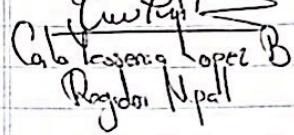 Carla Yessenia Lopez B
Regidor Mpal